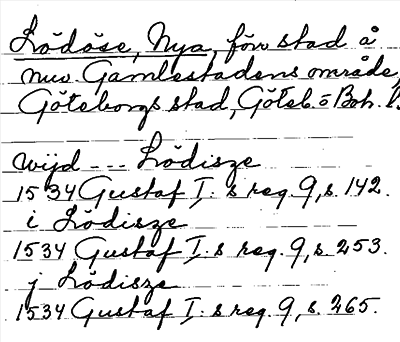 Lödöse, Nya, förv stad å
nuv. Gamlestadens område,
Göteborgs stad, Göteb o Boh. l.
wijd --- Lödisze
1534 Gustaf I:s reg. 9, s. 142.
i Lödisze
1534 Gustaf I:s reg. 9, s. 253.
j Lödisze
1534 Gustaf I:s reg. 9, s. 265.